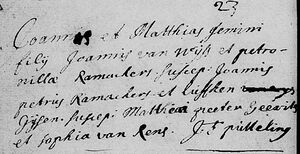 23
Joannes et Matthias Gemini
filij Joannis van Wijk et petro-
nillæ Ramackers suscep: Joannis
petrus Ramackers et
Tijssen. suscep: Matthiæ peeter Geerits
et sophia van Rens. J: F: pitteling